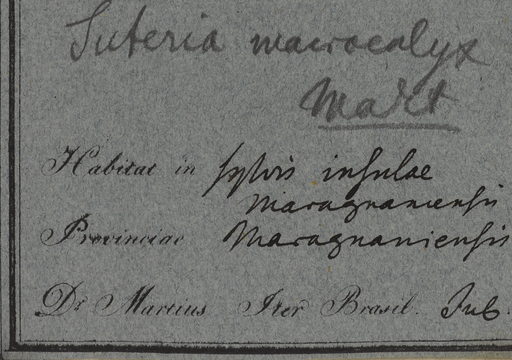 Suteria macrocalyx
Mart
Habitat in sylvis insulae
Maragnaniensis
Provinciae Maragnaniensis
Dr Martius Iter Brasil. Jul.